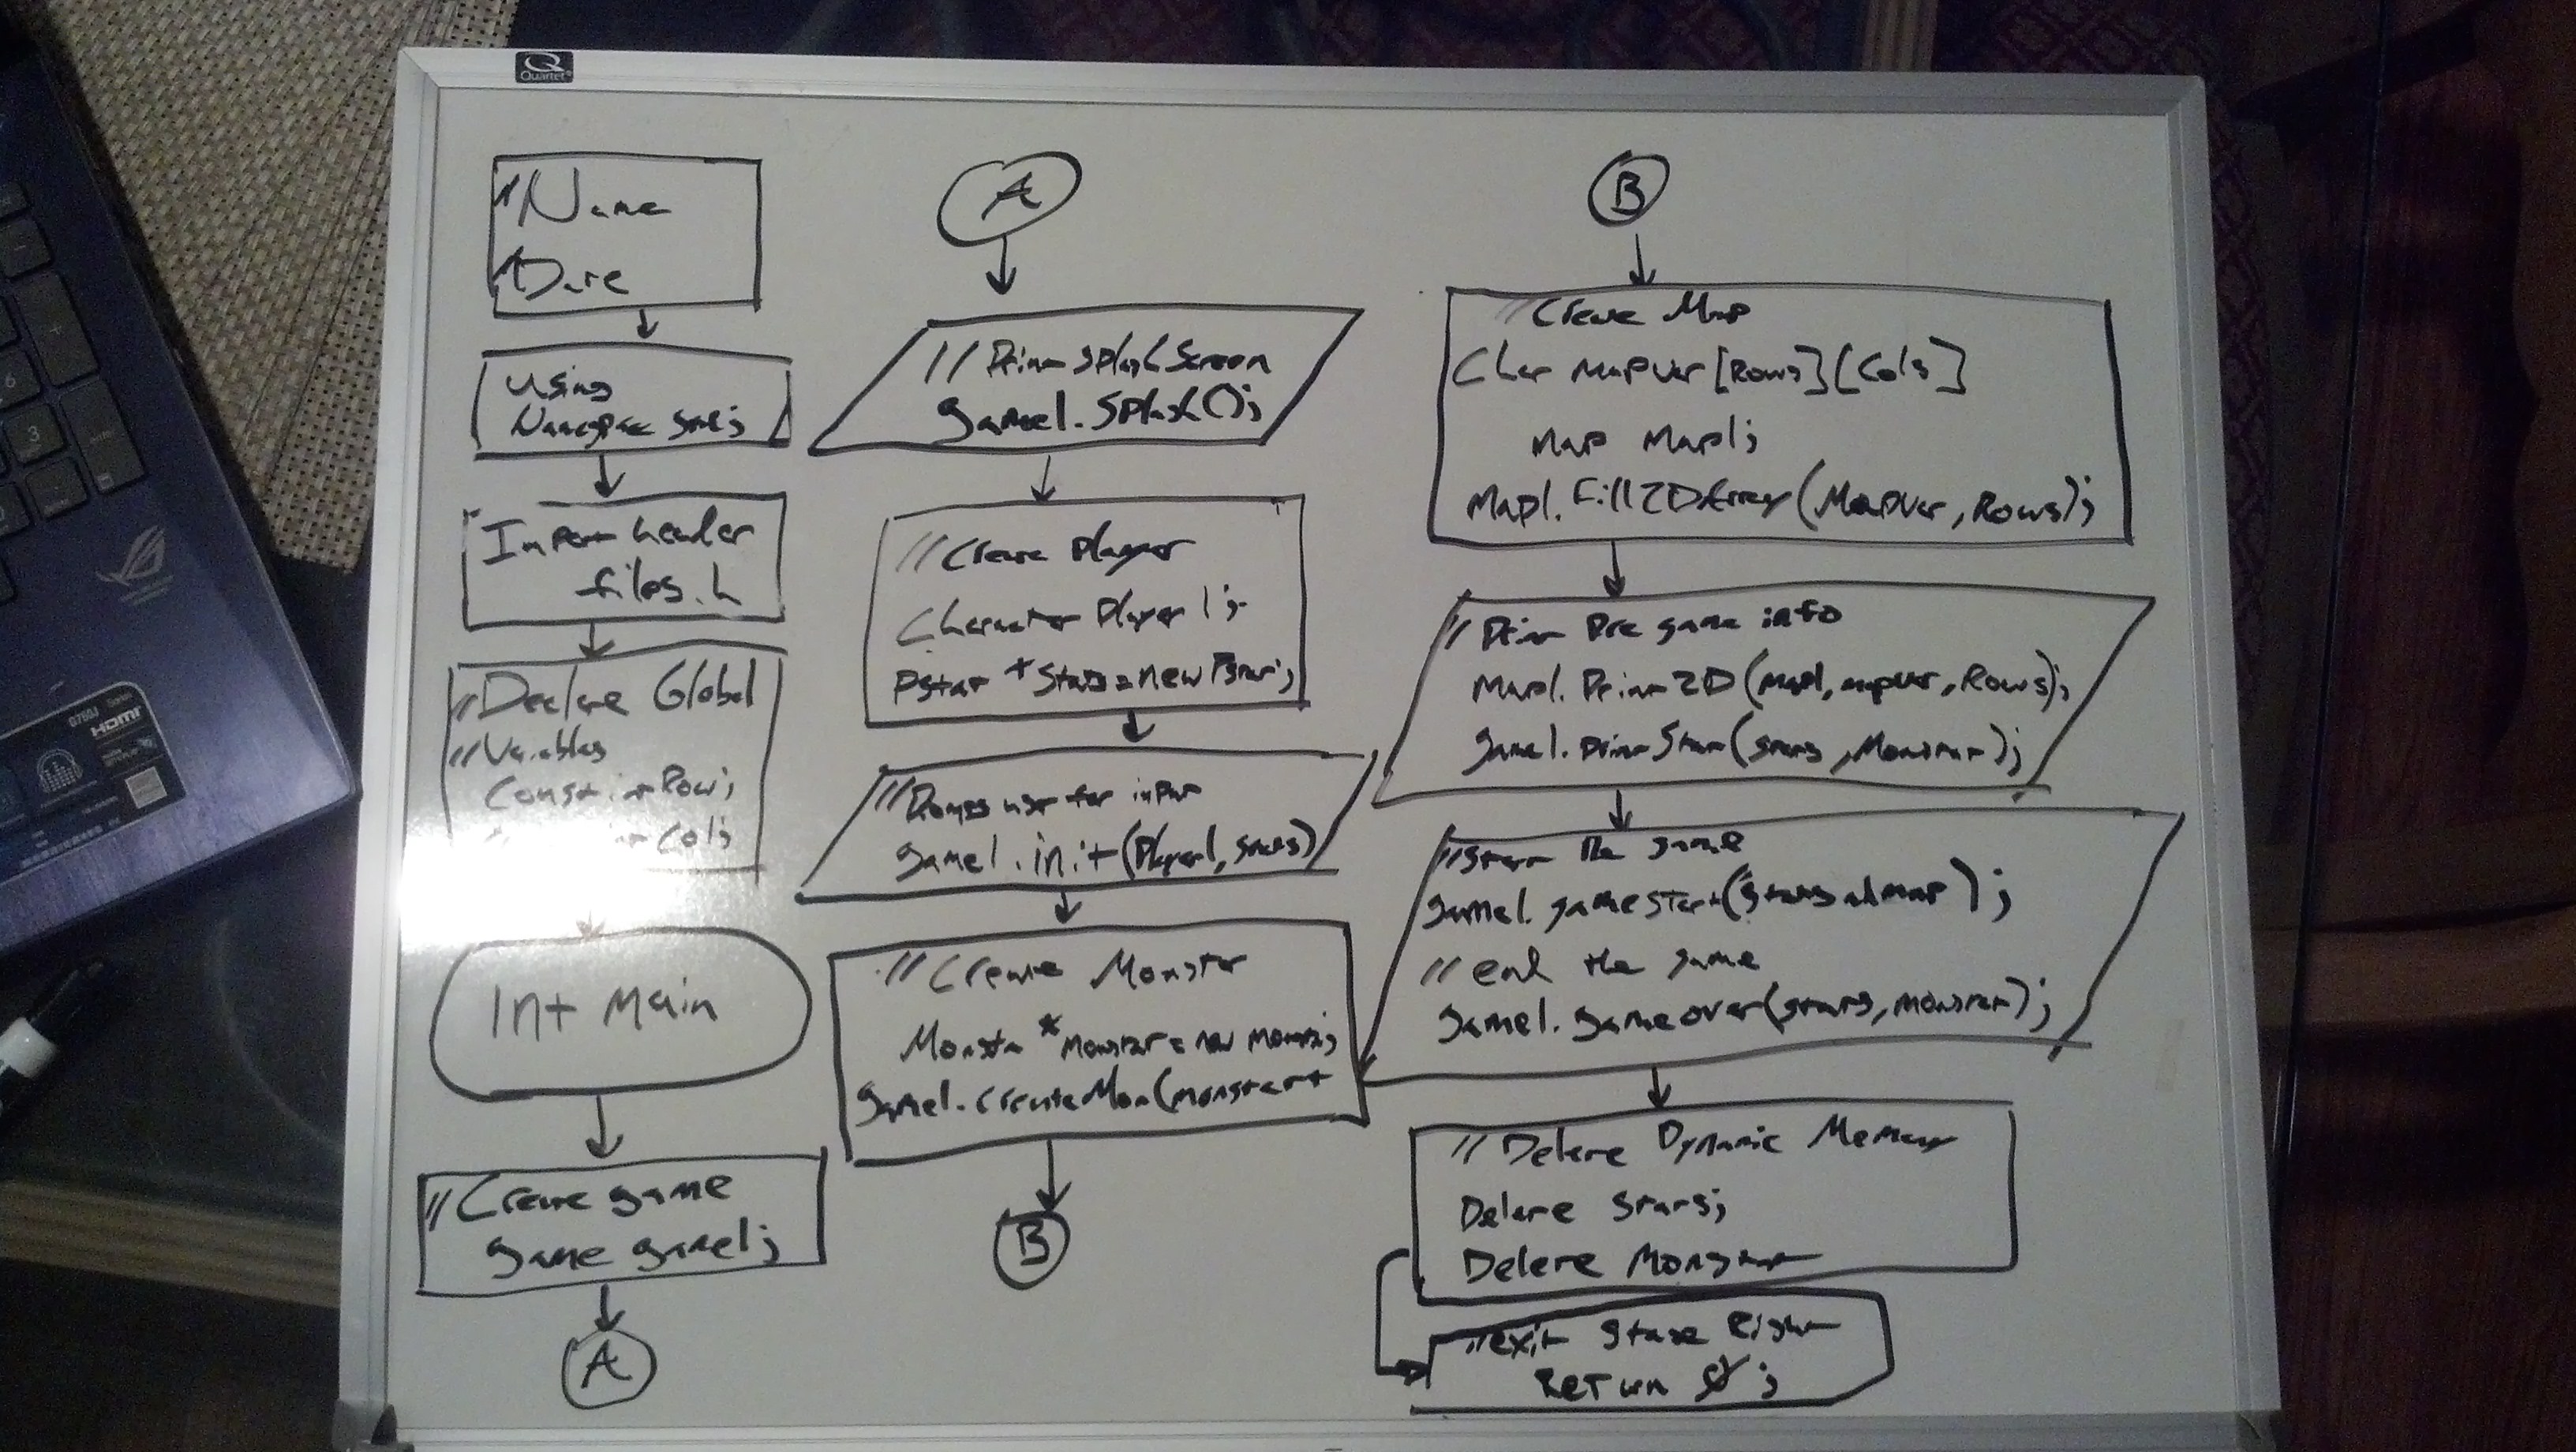 Q
Quartet
//Name
//Date
using
Namespace std;
Import header
files.h
//Declare Global
//Variables
Const int Row;
Col;
Int Main
//Create game
game game1;
A
A
//Print Splash Screen
game1.Splash();
//Create Player
Character Player1;
Pstat *Stats=new Pstat;
//Prompts user for input
game1.init(Player1, stats)
//Create Monster
Monster *monster=new monster;
game1.CreateMon(monster
B
B
//Create Map
Char MapVar[Rows][Cols]
Map Map1;
Map1.Fill2DArray(MapVar, Rows);
//Print Pre game info
Map1.Print2D(Map1, mapvar, Rows);
game1.PrintStat(stats, Monster);
//Start the game
game1.gamestart(stats map);
//end the game
game1.gameover(stats, monster);
//Delete Dynamic Memory
Delete Stats;
Delete Monster
//exit stage Right
Return 0;
G750J
HDMI
+
6
3
enter